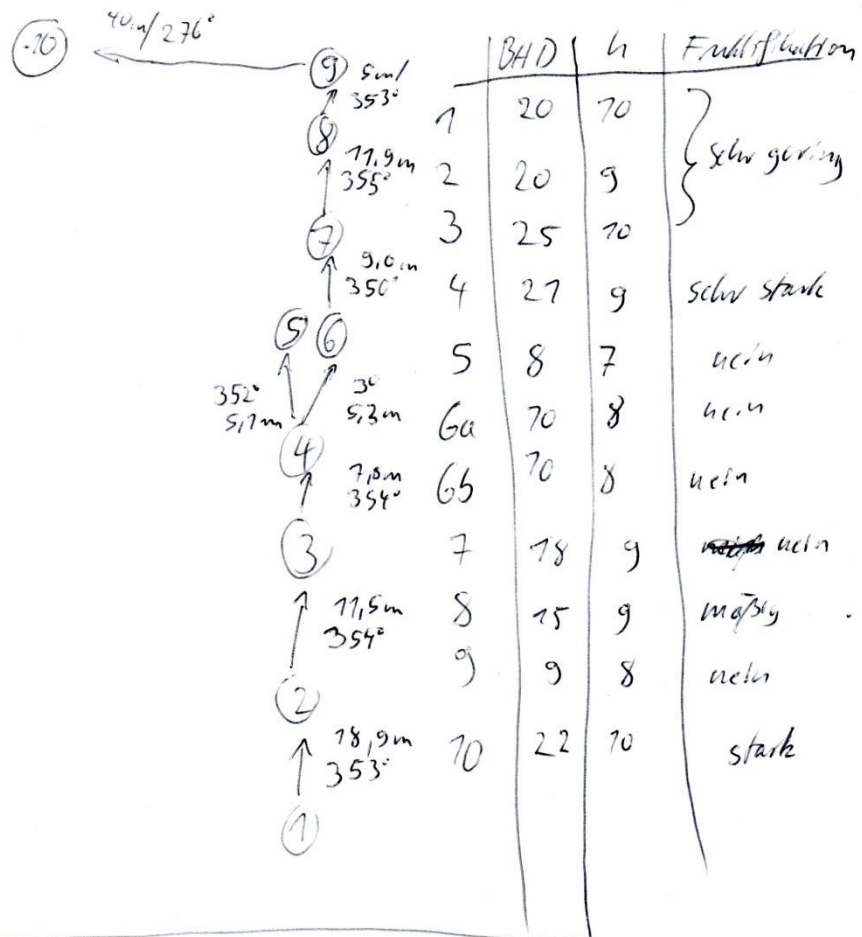 40m/276°
10
9 5m/
353°
8
11,9m
355°
7
9,0m
350°
5 6
352°
5,1m
3°
5,3m
4
7,8m
354°
3
11,5m
354°
2
18,9m
353°
1
BHD h Fruktifikation
1 20 10
2 20 9 sehr gering
3 25 10
4 21 9 sehr stark
5 8 7 nein
6a 10 8 nein
6b 10 8 nein
7 18 9 nein
8 15 9 mäßig
9 9 8 nein
10 22 10 stark